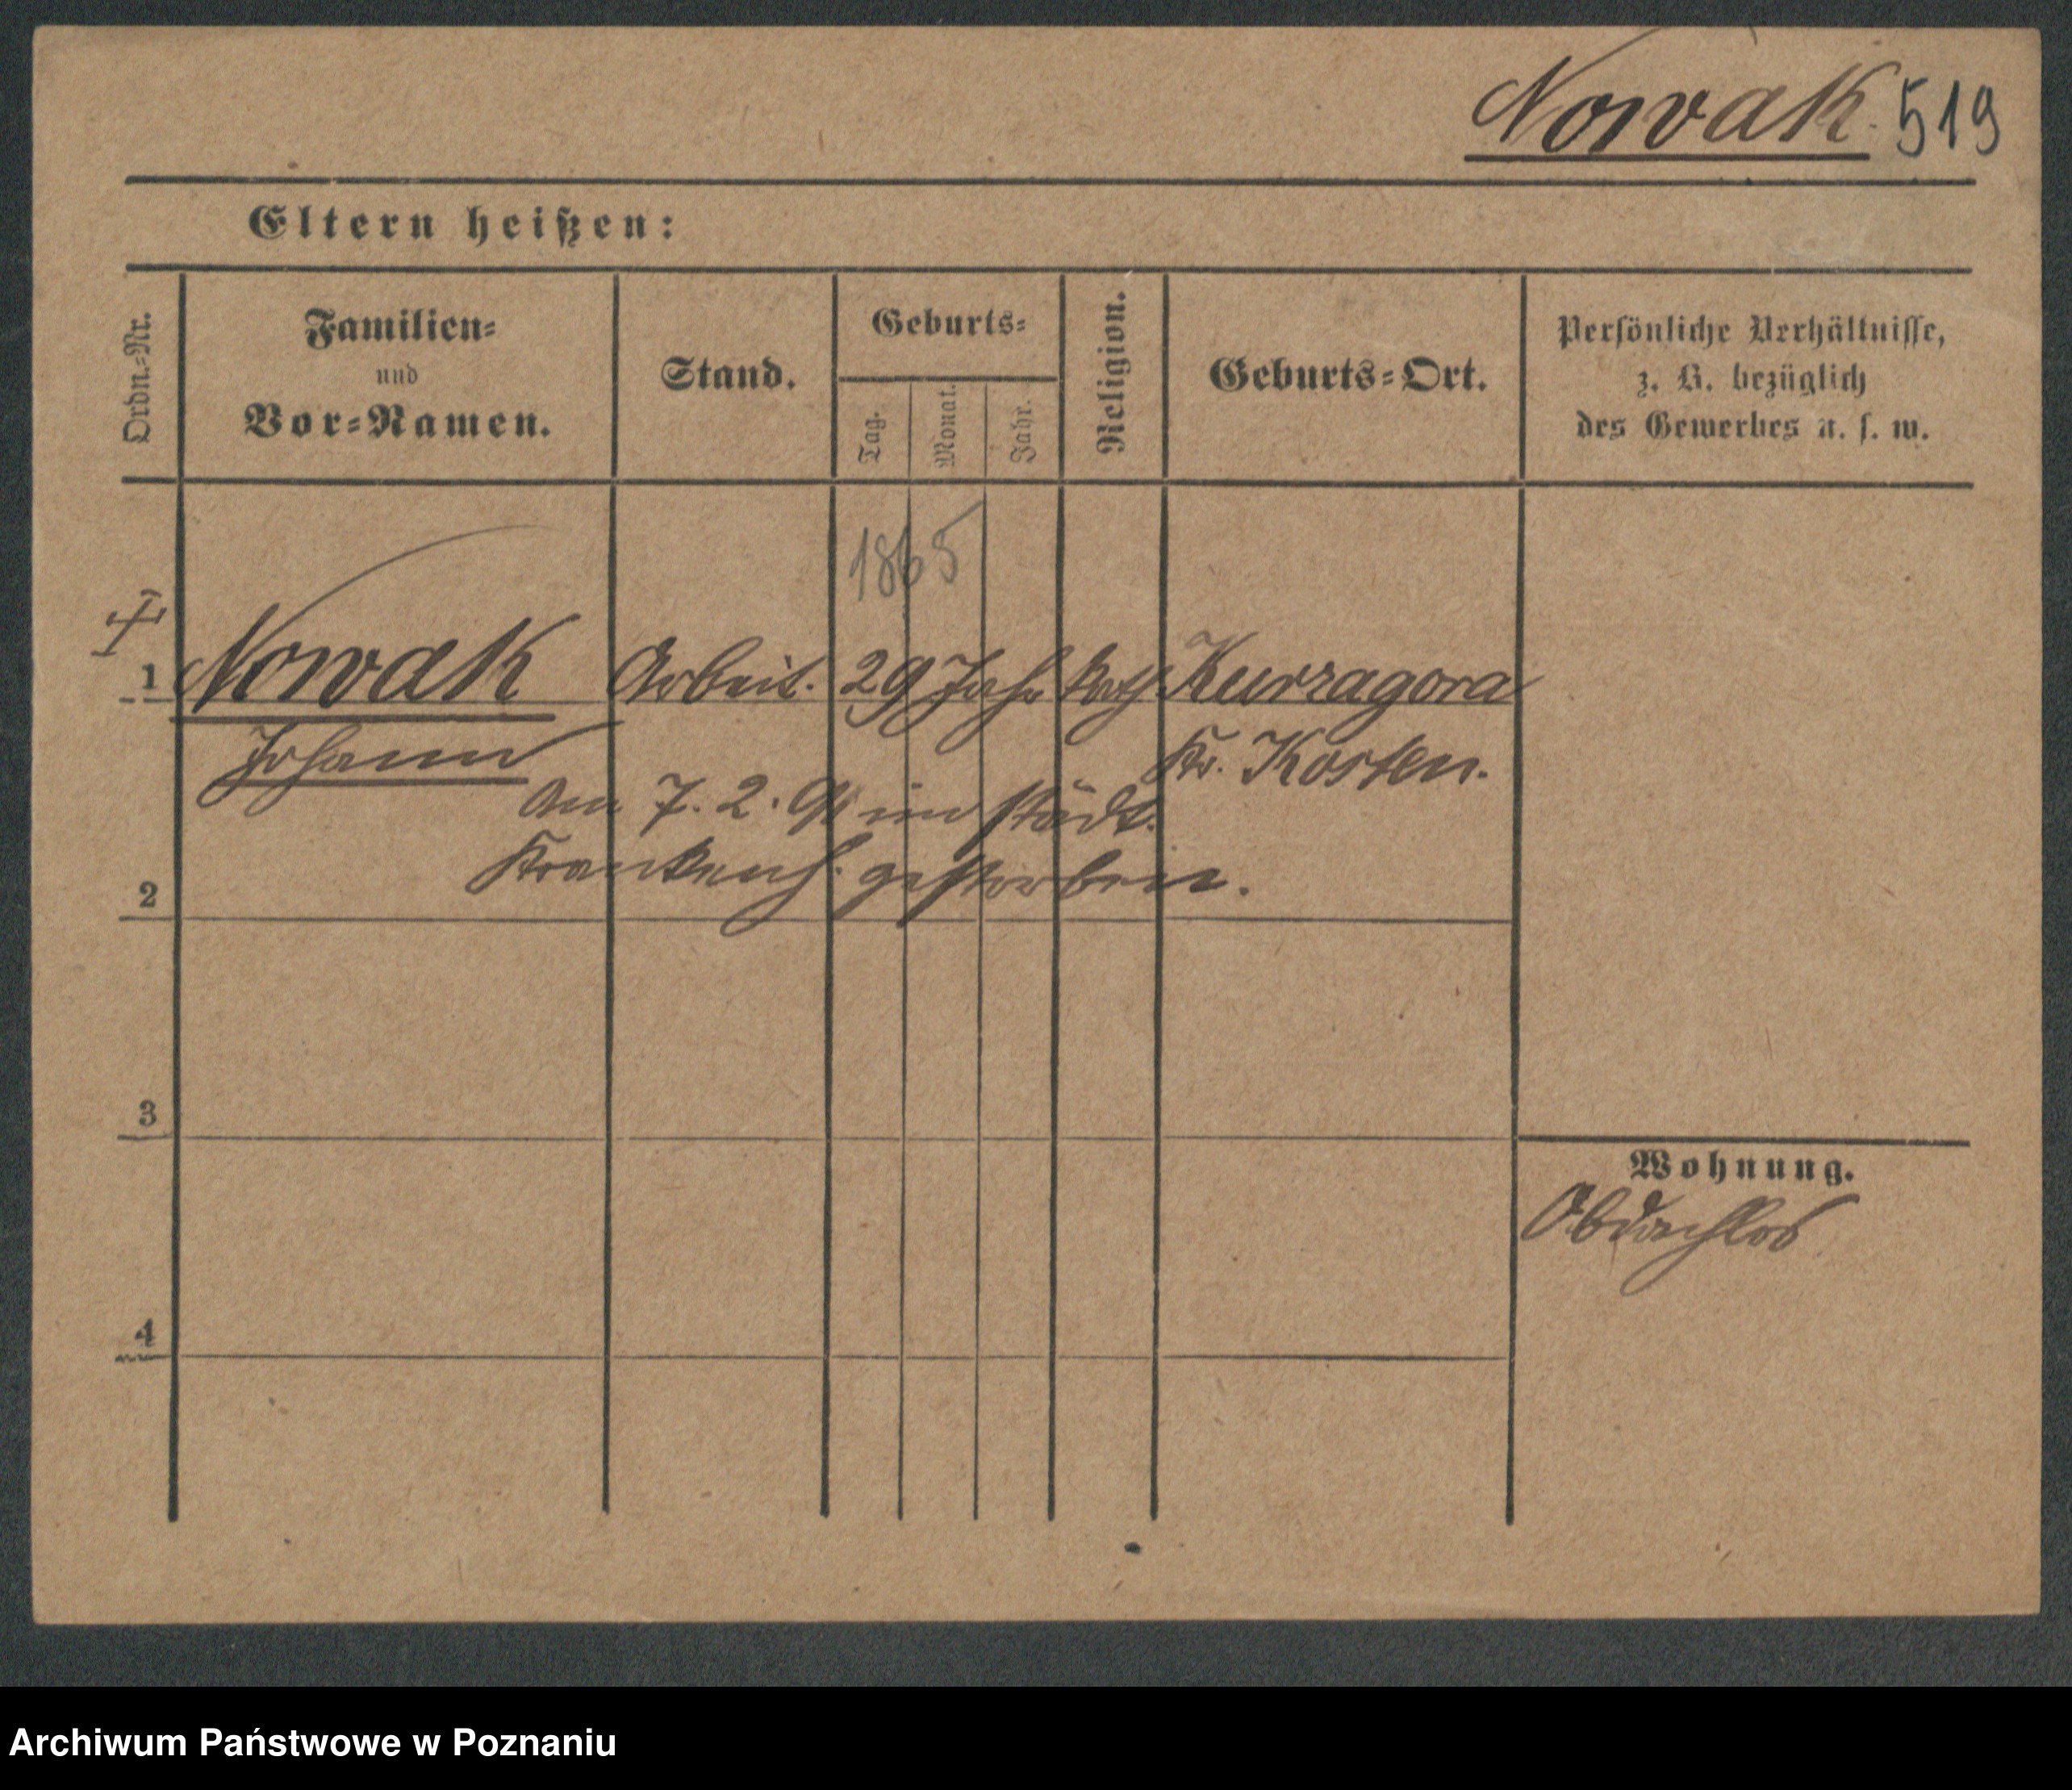 Nowak. 519
Eltern heißen:
Ordn.-Nr.
Familien-
und
Vor-Namen.
Stand.
Geburts-
Tag.
Monat.
Jahr.
Religion.
Geburts-Ort.
Persönliche Verhältnisse,
z. B. bezüglich
des Gewerbes u. s. w.
1865
1 Nowak Arbeit. 29 Jahr kath. Kurzagora
Johann Kr. Kosten.
Am 7. 2. im städt.
Krankenh. gestorben.
2
3
4
Wohnung.
Obdachlos
Archiwum Państwowe w Poznaniu